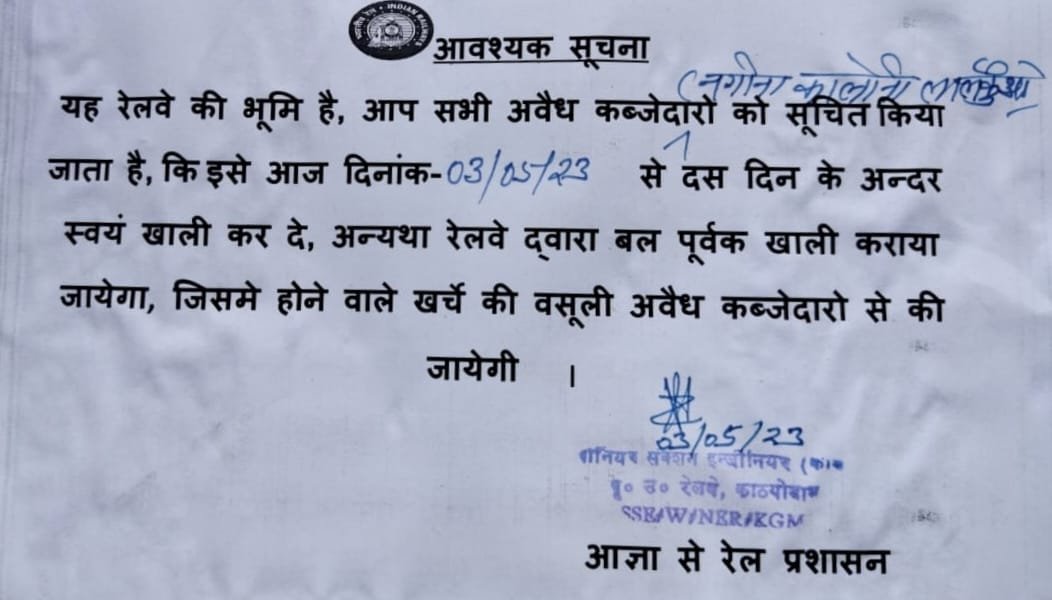 INDIAN RAILWAYS
आवश्यक सूचना
(नगीना कालोनी लालकुआं)
यह रेलवे की भूमि है, आप सभी अवैध कब्जेदारो को सूचित किया
जाता है, कि इसे आज दिनांक-03/05/23 से दस दिन के अन्दर
स्वयं खाली कर दे, अन्यथा रेलवे द्वारा बल पूर्वक खाली कराया
जायेगा, जिसमे होने वाले खर्चे की वसूली अवैध कब्जेदारो से की
जायेगी ।
03/05/23
सीनियर सेक्शन इन्जीनियर (कार्य
पू० उ० रेलवे, काठगोदाम
SSE/W/NER/KGM
आज्ञा से रेल प्रशासन